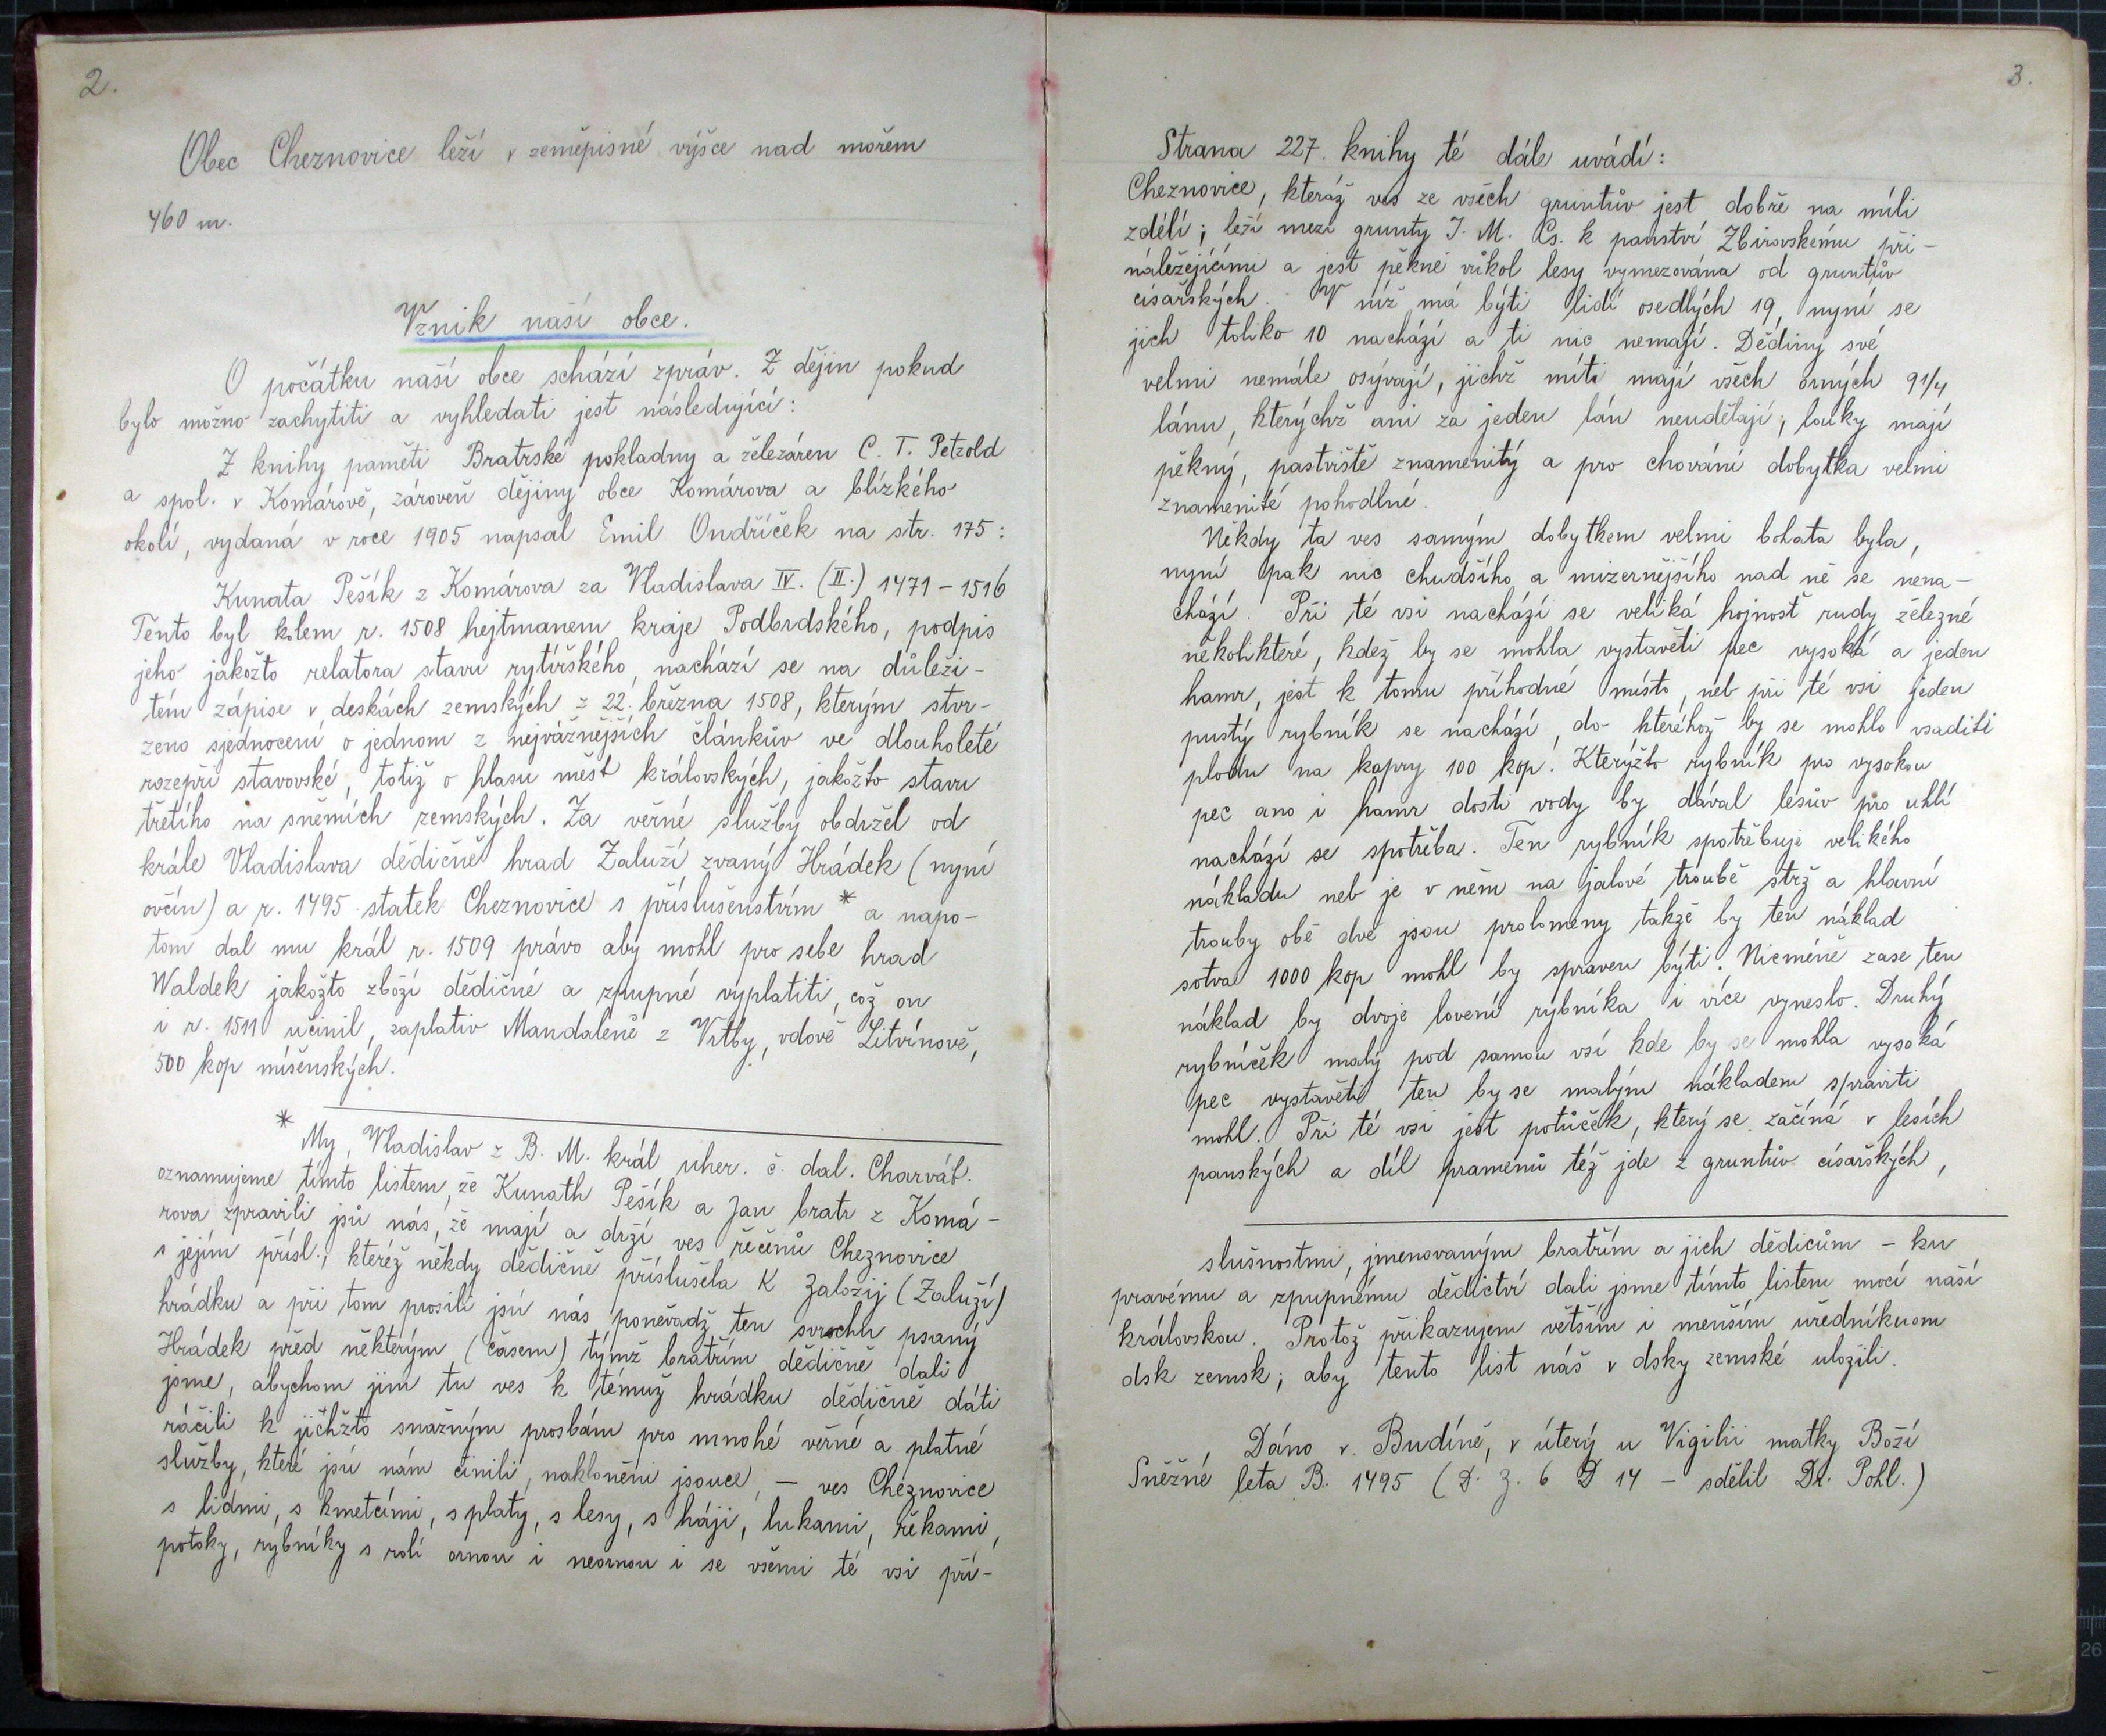 2.
Obec Cheznovice leží v zeměpisné výšce nad mořem
460 m.
Vznik naší obce.
O počátku naší obce schází zpráv. Z dějin pokud
bylo možno zachytiti a vyhledati jest následující:
Z knihy paměti Bratrské pokladny a železáren C. T. Petzold
a spol. v Komárově, zároveň dějiny obce Komárova a blízkého
okolí, vydaná v roce 1905 napsal Emil Ondříček na str. 175:
Kunata Pešík z Komárova za Vladislava IV. (II.) 1471-1516
Tento byl kolem r. 1508 hejtmanem kraje Podbrdského, podpis
jeho jakožto relatora stavu rytířského, nachází se na důleži-
tém zápise v deskách zemských z 22. března 1508, kterým stvr-
zeno sjednocení o jednom z nejvážnějších článkův ve dlouholeté
rozepři stavovské, totiž o hlasu měst královských, jakožto stavu
třetího na sněmích zemských. Za věrné služby obdržel od
krále Vladislava dědičně hrad Zaluží zvaný Hrádek (nyní
ovčín) a r. 1495 statek Cheznovice s příslušenstvím * a napo-
tom dal mu král r. 1509 právo aby mohl pro sebe hrad
Waldek jakožto zboží dědičné a zpupné vyplatiti, což on
i r. 1511 učinil, zaplativ Mandaleně z Vrtby, vdově Litvínově,
500 kop míšenských.
* My, Vladislav z B. M. král uher. č. dal. Charvát.
oznamujeme tímto listem, že Kunath Pešík a Jan bratr z Komá-
rova zpravili jsů nás, že mají a drží ves řečenů Cheznovice
s jejím přísl., kteréž někdy dědičně příslušela k Založij (Zaluží)
hrádku a při tom prosili jsú nás poněvadž ten svrchu psaný
Hrádek před některým (časem) týmž bratřím dědičně dali
jsme, abychom jim tu ves k témuž hrádku dědičně dáti
ráčili k jichžto snažným prosbám pro mnohé věrné a platné
služby, které jsú nám činili, nakloněni jsouce, - ves Cheznovice
s lidmi, s kmetcími, s platy, s lesy, s háji, lukami, řekami,
potoky, rybníky s rolí ornou i neornou i se všemi té vsi pří-
3.
Strana 227. knihy té dále uvádí:
Cheznovice, kteráž ves ze všech gruntův jest dobře na míli
zdélí; leží mezi grunty J. M. Cs. k panství Zbirovskému při-
náležejícími a jest pěkně vůkol lesy vymezována od gruntův
císařských. V níž má býti lidí osedlých 19, nyní se
jich toliko 10 nachází a ti nic nemají. Dědiny své
velmi nemále osývají, jichž míti mají všech orných 91/4
lánu, kterýchž ani za jeden lán neudělají; louky mají
pěkný, pastviště znamenitý a pro chování dobytka velmi
znamenité pohodlné.
Někdy ta ves samým dobytkem velmi bohata byla,
nyní pak nic chudšího a mizernějšího nad ně se nena-
chází. Při té vsi nachází se veliká hojnosť rudy železné
několikteré, kdež by se mohla vystavěti pec vysoká a jeden
hamr, jest k tomu příhodné místo, neb při té vsi jeden
pustý rybník se nachází, do kteréhož by se mohlo vsaditi
plodu na kapry 100 kop. Kterýžto rybník pro vysokou
pec ano i hamr dosti vody by dával lesův pro uhlí
nachází se spotřeba. Ten rybník spotřebuje velikého
nákladu neb je v něm na jalové troubě strž a hlavní
trouby obě dvě jsou prolomeny takže by ten náklad
sotva 1000 kop mohl by spraven býti. Nicméně zase ten
náklad by dvoje lovení rybníka i více vyneslo. Druhý
rybníček malý pod samou vsí kde by se mohla vysoká
pec vystavěti ten by se malým nákladem spraviti
mohl. Při té vsi jest potůček, který se začíná v lesích
panských a díl pramenů též jde z gruntův císařských,
slušnostmi, jmenovaným bratřím a jich dědicům - ku
pravému a zpupnému dědictví dali jsme tímto listem mocí naší
královskou. Protož přikazujem větším i menším uředníkuom
dsk zemsk; aby tento list náš v dsky zemské uložili.
Dáno v Budíně, v úterý u Vigilii matky Boží
Sněžné leta B. 1495 (D. Z. 6 D 14 - sdělil Dr. Pohl.)
26